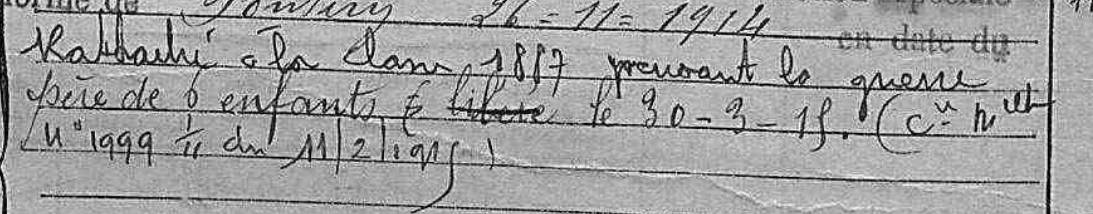 forme de 26 = 11 = 1914
en date du
Rattaché à la Classe 1887 pendant la guerre
père de 6 enfants, libéré le 30-3-15. (Cre Melle
N° 1999 1/11 du 11/2/1915)